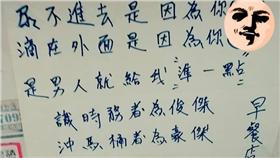 尿不進去是因為你
滴在外面是因為你
是男人就給我準一點
識時務者為俊傑
沖馬桶者為豪傑
早餐店